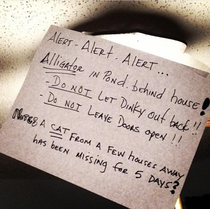 ALERT - ALERT - ALERT...
ALLIGATOR IN POND behind house!
- DO NOT LET DINKY OUT BACK!!
- DO NOT LEAVE DOORS OPEN!!
A CAT FROM A FEW HOUSES AWAY
HAS BEEN MISSING FOR 5 DAYS?